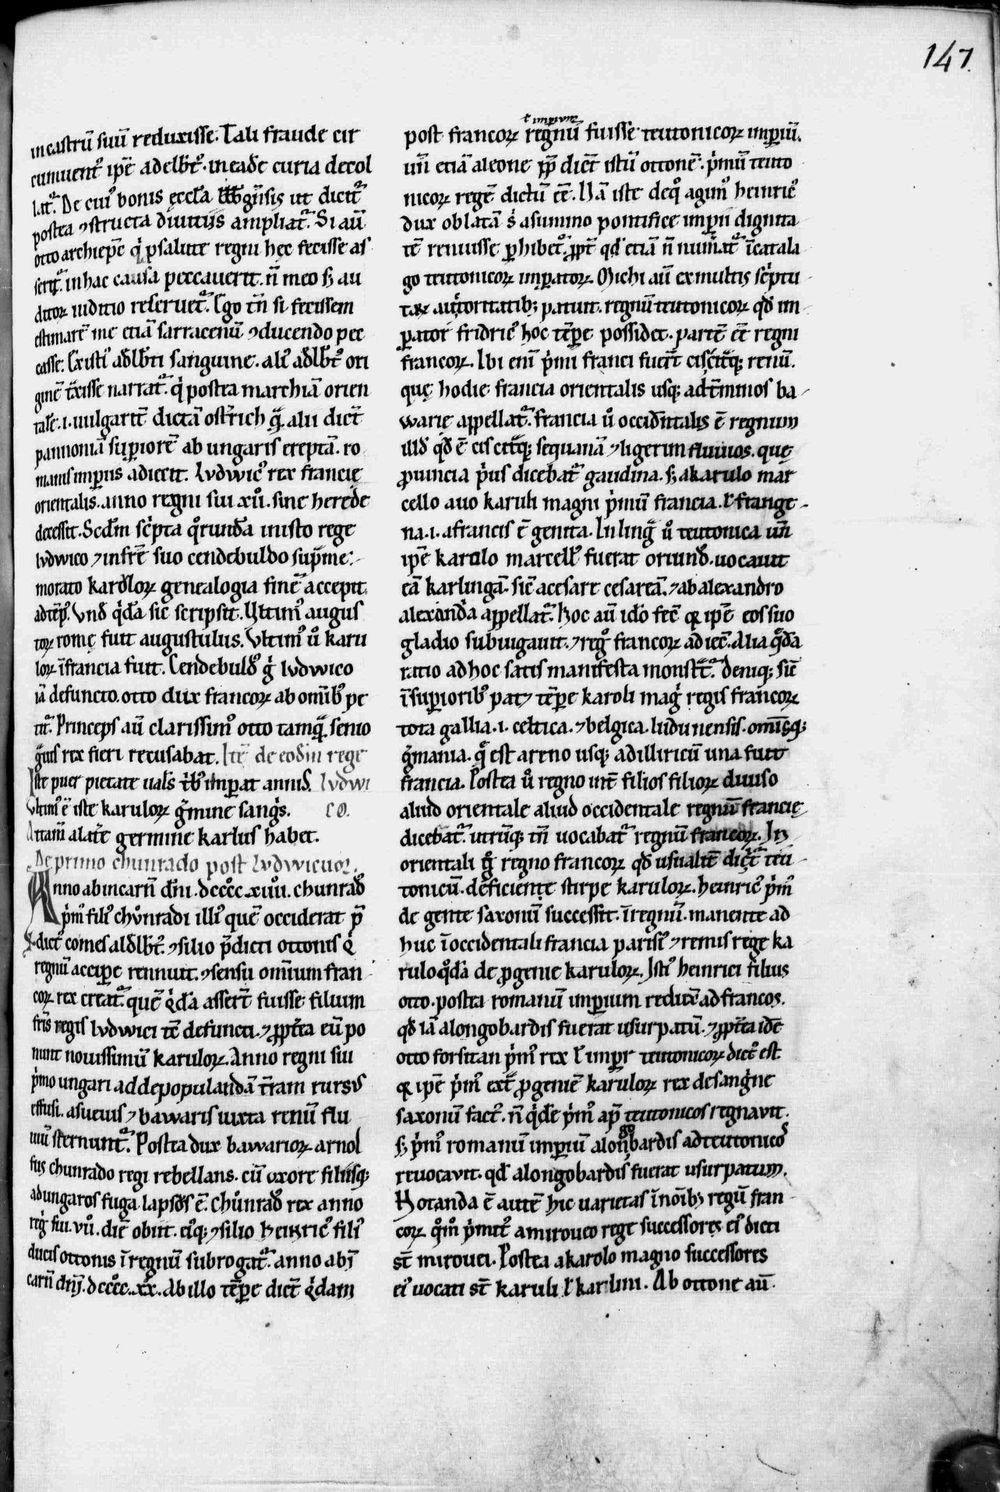 147.
in castrū suū reduxisse. Tali fraude cir
cumuent᷑ ipē adelbt᷑. in eadē curia decol
lat᷑. De cui᷒ bonis eccl̄a ut dicit᷑
postea ⁊ structa diuitiis ampliat᷑. Si aū
otto archiepc̄ q̇ p salute regni hec fecisse as
serit᷑. in hac causa peccauerit. n̄ meo sꝫ au
ditoꝝ iuditio reseruet᷑. Ego tn̄ si fecissem
estimarē me etiā sarracenū ⁊ ducendo pec
casse. Ex isti᷒ adl̄bti sanguine. al᷒ adl̄bt᷒ ori
ginē t̄xisse narrat᷑. q̇ postea marchiā orien
talē .i. uulgarit᷑ dictā ost᷑rich q̄. alii dic̄t
pannoniā supiorē ab ungaris ereptā. ro
manis impiis adiecit. Lvdwic᷒ rex francię
orientalis. anno regni sui xii̊. sine herede
decessit. Scd̄m sc̄pta q̊rundā iu isto rege
lvdwico ⁊ infr̄e suo cendebuldo sup̄me:
morato karoloꝝ genealogia finē accepit
ad tēp᷒. Vnd̄ q̇dā sic̄ scripsit. Vltim᷒ augus
toꝝ romę fuit augustulus. Vltim᷒ ū karu
loꝝ ī francia fuit. Cendebuldo g̊ lvdwico
iā defuncto. otto dux francoꝝ ab omīb᷒ pe
tit᷑. Princeps aū clarissim᷒ otto tamq̄ senio
g̊uis rex fieri recusabat. Itē de eodm̄ rege
Iste puer pietate ual̄s imperat annis. lvdwi
Vltim᷒ ē iste karuloꝝ g̊mine sang̊s. co.
Attam̄ alat᷑e germine karlus habet.
De primo chunrado post lvdwicuꝫ.
Anno ab incarn̄ dn̄i. dcccc. xiiii. chunrad᷒
p̄m᷒ fili᷒ chůnradi illi᷒ quē occiderat p̄
dict᷒ comes aldl̄bt᷒. ⁊ silio p̄dicti ottonis q̇
regnū accipe rennuit. ⁊ sensu omnium fran
coꝝ rex creat᷑. quē q̇dā asser̄t fuisse filium
fr̄is regis lvdwici tē defuncti. ⁊ ppt̄ea eū po
nunt nouissimū karuloꝝ. Anno regni sui
p̊mo ungari ad depopulandā t̄ram rursis
effusi. a sueuis ⁊ bawaris iuxta renū flu
uiū sternunt᷑. Postea dux bawarioꝝ arnol
fus chunrado regi rebellans. cū uxore filiisqꝫ
ad ungaros fuga lapsus ē. Chůnrad᷒ rex anno
reg̊ sui. vii̊. diē obiit. eiqꝫ ⁊ silio heinric᷒ fili᷒
ducis ottonis ī regnū subrogat᷑. anno ab ī
carn̄ dn̄i. dcccc. xx. Ab illo tēpe dic̄t q̇dam
ł imperiū
post francoꝝ regnū fuisse teutonicoꝝ imperiū.
uñ etiā a leone pp̄ dic̄t istū ottonē. p̊mū teuto
nicoꝝ regē dictū ēē. Nā iste de q̊ agim᷒ heinric᷒
dux oblatā s̊ a summo pontifice imperii dignita
tē renuisse phibet᷑. ppt̄ qd̄ etiā n̄ num̄at᷑ ī catala
go teutonicoꝝ imperatoꝝ. Michi aū ex multis sc̊ptu
raꝝ auctoritatibꝫ patuit. regnū teutonicoꝝ qd̄ im
perator fridric᷒ hoc tēpe possidet. partē ēē regni
francoꝝ. Ibi enī p̊mi franci fuer̄t cis cit̄qꝫ renū.
quę hodie francia orientalis usqꝫ ad t̄minos ba
warię appellat᷑. francia ů occidentalis ē regnum
illd̄ qd̄ ē cis citqꝫ sequanā ⁊ ligerim fluuios. que
ꝓuincia p̊us dicebat᷑ gaudina. sꝫ a karulo mar
cello auo karuli magni p̊mū francia. ł frange
na .i. a francis ē genita. In ling̊ ů teutonica uñ
ipē karolo marcell᷒ fuerat oriund᷒. uocauit
eā karlingā. sic̄ a cesare cesareā. ⁊ ab alexandro
alexandia appellat᷑. Hoc aū ido fec̄ qꝛ ipē eos suo
gladio subiugauit. ⁊ reg᷒ francoꝝ adiec̄. Alia q̊da
ratio ad hoc satis manifesta monst᷑t᷑. deniqꝫ sic̄
ī supioribꝫ pat᷑ tēpe karoli mag̊ regis francoꝝ
tota gallia .i. celtica. ⁊ belgica. ludunensis. om̄isqꝫ
g̊mania. q̄ est a reno usqꝫ ad illiricū una fuit
francia. Postea ů regno int̄ filios filioꝝ diuiso
aliud orientale aliud occidentale regnū francię
dicebat᷑. utrūqꝫ tn̄ uocabat᷑ regnū francoꝝ. In
orientali g̊ regno francoꝝ qd̄ usualit᷑ dic̄t᷑ teu
tonicū. deficiente stirpe karuloꝝ. heinric᷒ p̊m᷒
de gente saxonū successit. ī regnū. manente ad
huc ī occidentali francia parisi᷒ ⁊ remis rege ka
rulo q̊dā de ꝓgenie karuloꝝ. Isti᷒ heinrici filius
otto. postea romanū imperium reduxē ad francos.
qd̄ iā a longobardis fuerat usurpatū. ⁊ ppt̄ea idē
otto forsitan p̊m᷒ rex ł impr̄ teutonicoꝝ dict᷒ est
qꝛ ipē p̊m᷒ ext̄ ꝓgeniē karuloꝝ rex de sang̊ne
saxonū fact᷒. n̄ q̇dē p̊m᷒ ap̄ teutonicos regnauit.
sꝫ p̊m᷒ romanū imperiū a longobardis ad teutonicos
reuocauit. qd̄ a longobardis fuerat usurpatum.
Notanda ē autē hic uarietas ī noībꝫ regū fran
coꝝ. q̊m̄ p̊mit᷒ a mirouco rege successores ei᷒ dicti
st̄ mirouci. Postea a karolo magno successores
ei᷒ uocati st̄ karuli ł karlini. Ab ottone aū